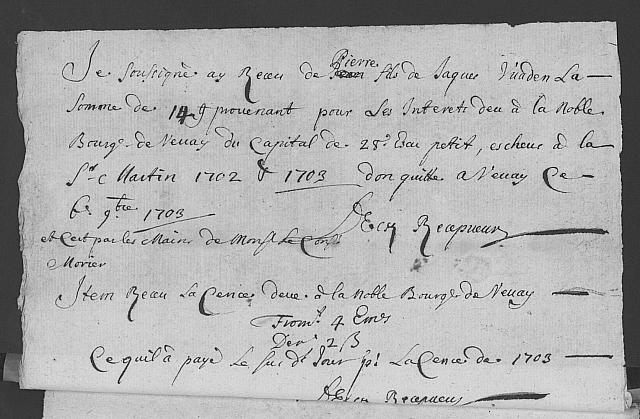 Je Soussigné ay Receu de Pierre fils de Jaques Vuaden La
Somme de 14 g provenant pour Les Interets deu à la Noble
Bourg.e de Vevay du Capital de 28 Escu petit, escheus à la
S.t Martin 1702 & 1703 don quitte a Vevay Ce
6.e 9bre 1703
Recepveur
et C'est par les Mains de Mons.r Le
Morier
Item Receu La Cence deue à la Noble Bourg.e de Vevay
From.t 4 Emes
Den. 2 ß
Ce quil à payé Le Sus d.t Jour p.r La Cence de 1703
Recepveur